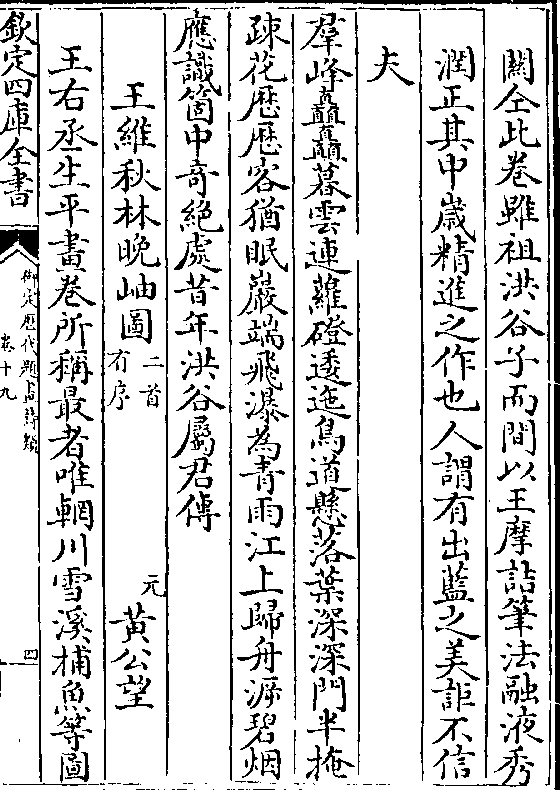 關仝此卷雖祖洪谷子而間以王摩詰筆法融液秀
潤正其中歲精進之作也人謂有出藍之美詎不信
夫
羣峰矗矗暮雲連蘿磴逶迤鳥道懸落葉深深門半掩
疎花歴歴客猶眠巖端飛瀑為青雨江上歸舟泝碧烟
應識箇中奇絶處昔年洪谷屬君傳
王維秋林晚岫圖二首有序 元 黄公望
王右丞生平畫卷所稱最者唯輞川雪溪捕魚等圖
欽定四庫全書
御定歷代題畫詩類 卷十九
四